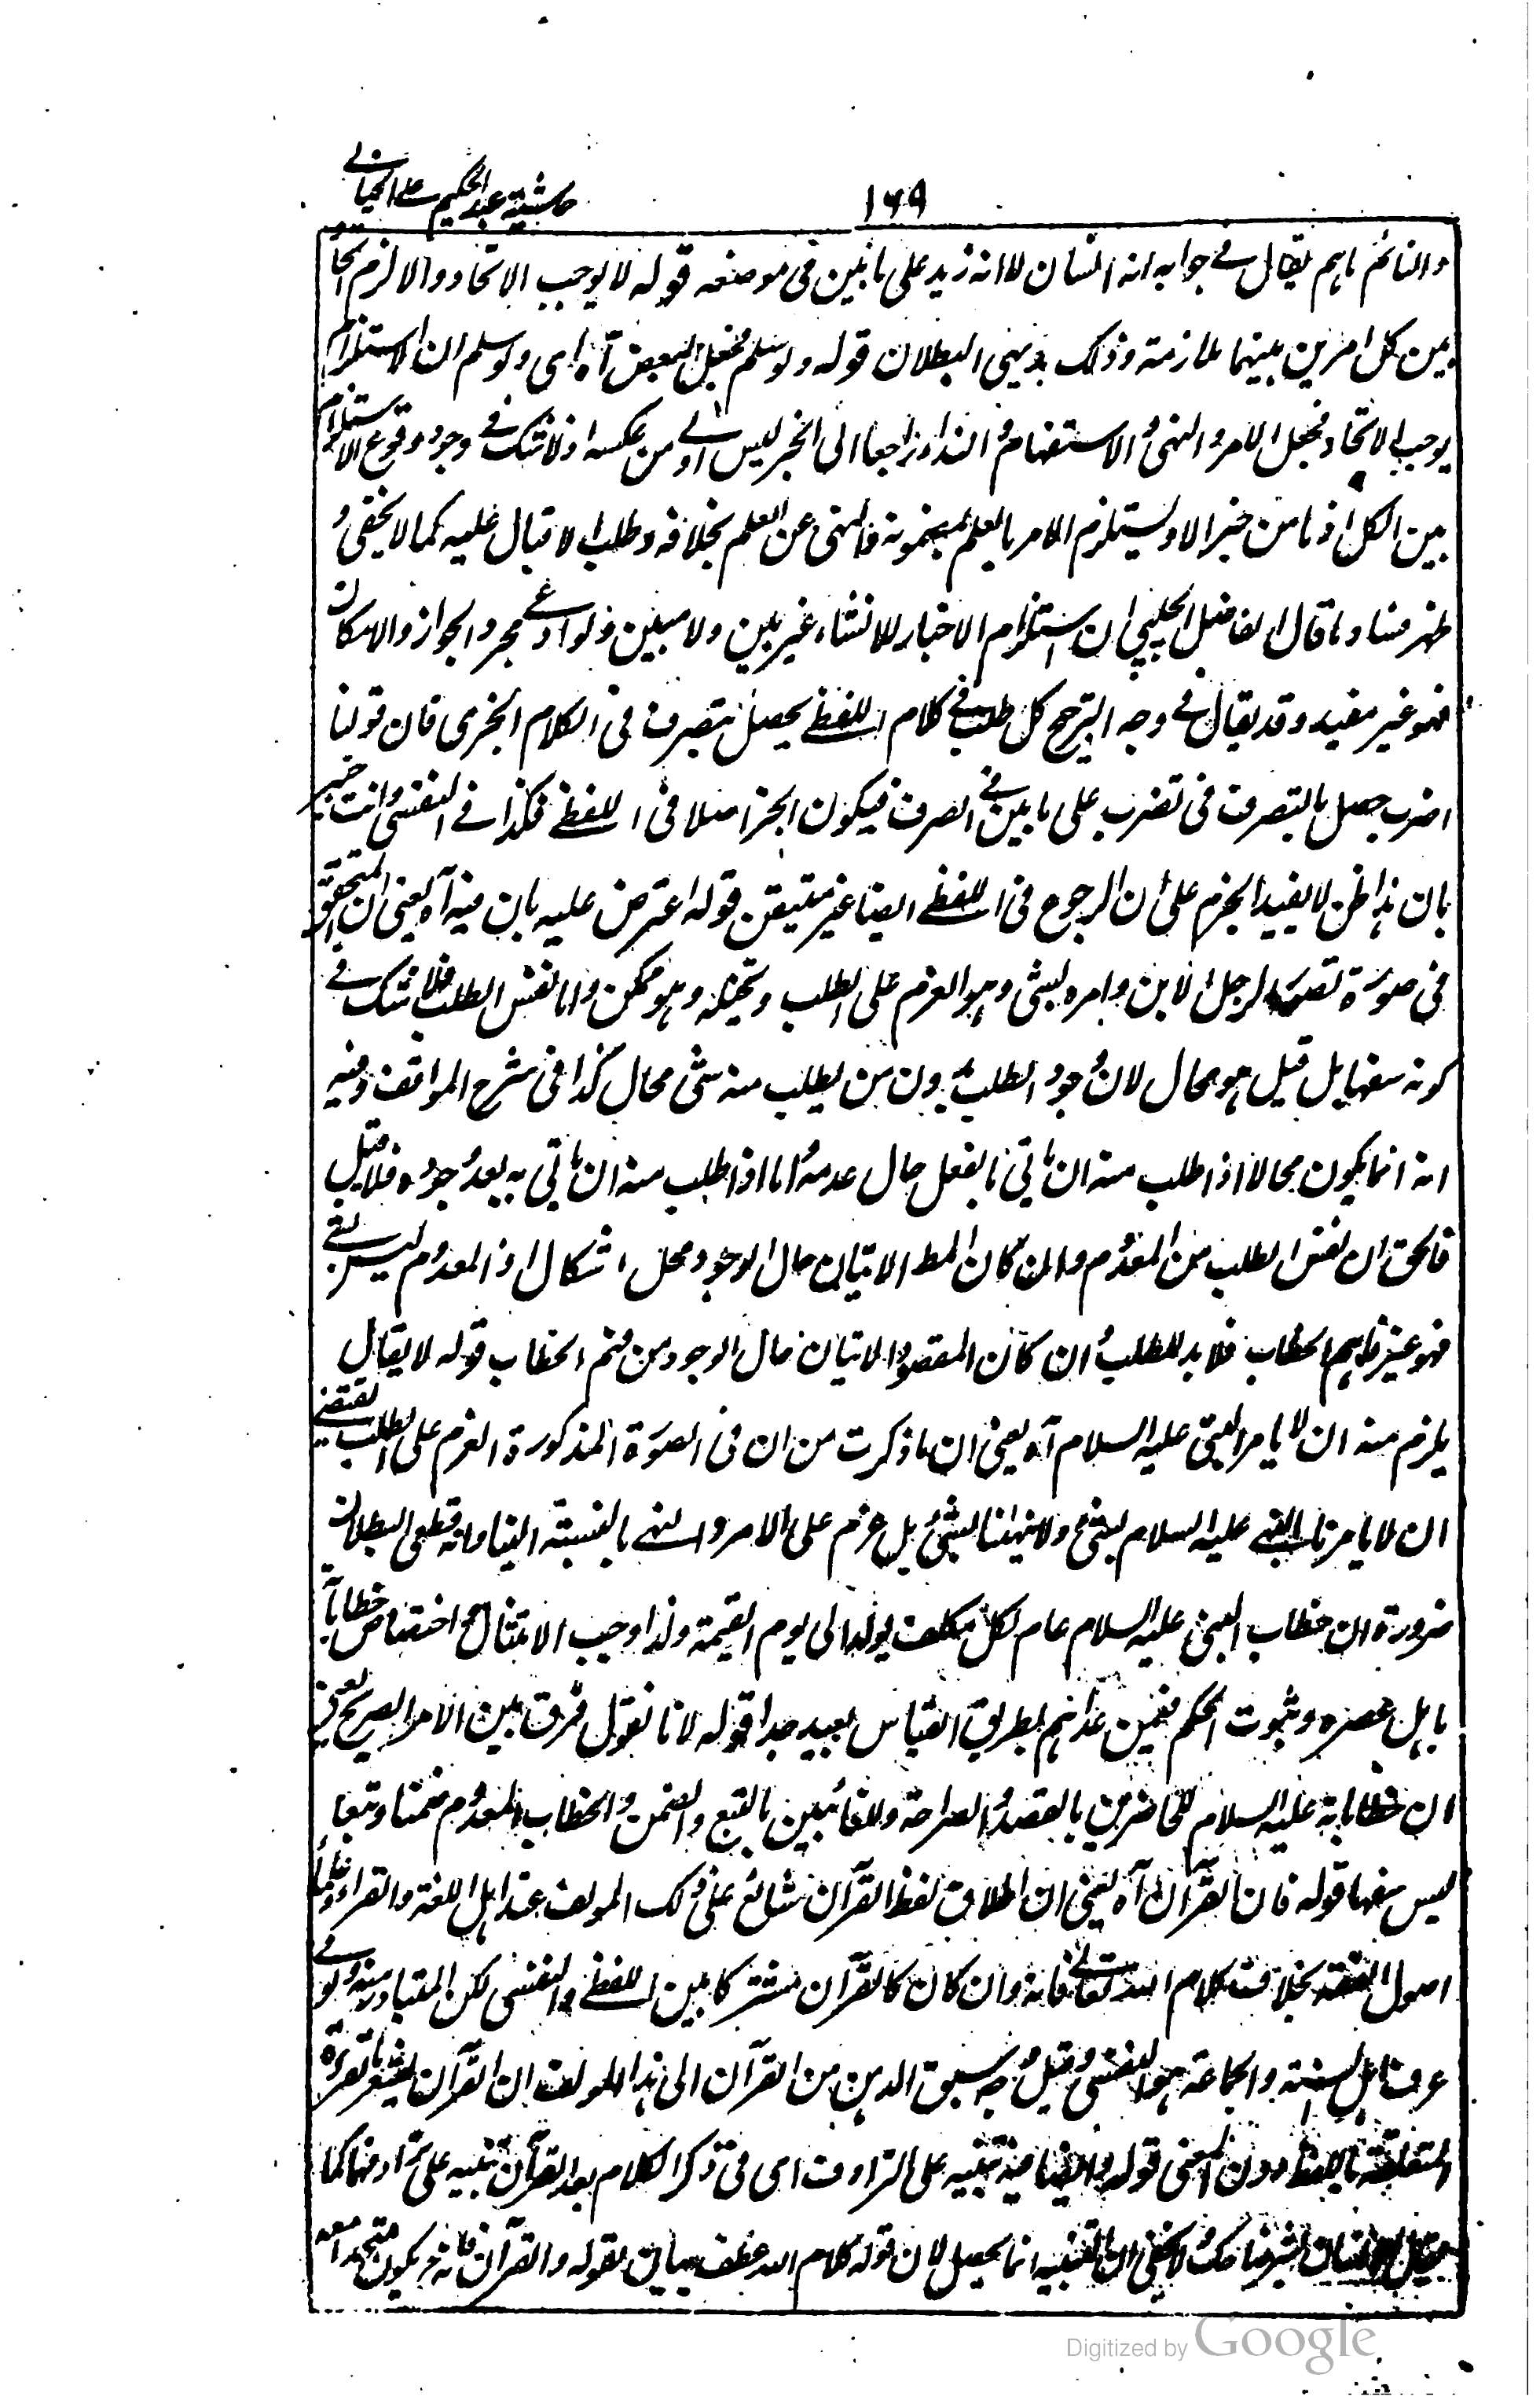 حاشية عبد الحكيم على الخيالي
١٦٩
والنائم ماهم يقال في جوابه انه انسان لا انه زيد على ما بين في موضعه قوله لا يوجب الاتحاد والا لزم اتحاد
بين كل امرين بينهما ملازمة وذلك بديهي البطلان قوله ولو سلم فجعل البعض آه اى ولو سلم ان الاستلزام
يوجب الاتحاد فجعل الامر والنهى والاستفهام والنداء راجعا الى الخبر ليس اولى من عكسه اذ لا شك في وجود وقوع الاستلزام
بين الكل اذ ما من خبر الا ويستلزم الامر بالعلم بمضمونه والنهى عن العلم بخلافه وطلب الاقبال عليه كما لا يخفى و
ظهر فساد ما قال الفاضل الچلپي ان استلزام الاخبار للانشاء غير بين ولا مبين ولو ادعى مجرد الجواز والامكان
فهو غير مفيد وقد يقال في وجه الترجيح كل طلب في كلام اللفظي يحصل بتصرف في الكلام الخبرى فان قولنا
اضرب حصل بالتصرف في تضرب على ما بين في الصرف فيكون الخبر اصلا في اللفظي فكذا في النفسي وانت خبير
بان هذا ظن لا يفيد الجزم على ان الرجوع في اللفظي ايضا غير متيقن قوله اعترض عليه بان فيه آه يعنى ان المتحقق
في صورة تقدير الرجل الابن وامره بشئ وهو العزم على الطلب وتخيله وهو ممكن واما نفس الطلب فلا شك في
كونه سفها بل قيل هو محال لان وجود الطلب بدون من يطلب منه شئ محال كذا في شرح المواقف وفيه
انه انما يكون محالا اذا طلب منه ان ياتي بالفعل حال عدمه اما اذا طلب منه ان ياتي به بعد وجوده فلا قيل
فالحق ان نفس الطلب من المعدوم وان كان المط الاتيان حال الوجود محل اشكال اذ المعدوم ليس بشئ
فهو غير فاهم الخطاب فلا بد للطلب وان كان المقصود الاتيان حال الوجود من فهم الخطاب قوله لا يقال
يلزم منه ان لا يامر النبي عليه السلام آه يعنى ان ما ذكرت من ان في الصورة المذكورة العزم على الطلب يقتضي
ان لا يامرنا النبي عليه السلام بشئ ولا ينهانا بشئ بل عزم على الامر والنهي بالنسبة الينا وانه قطعي البطلان
ضرورة ان خطاب النبي عليه السلام عام لكل مكلف يولد الى يوم القيمة ولذا وجب الامتثال واختصاص خطاباته
باهل عصره وثبوت الحكم فيمن عداهم بطريق القياس بعيد جدا قوله لانا نقول فرق بين الامر الصريح يعنى
ان خطاباته عليه السلام للحاضرين بالقصد والصراحة وللغائبين بالتبع والضمن والخطاب للمعدوم ضمنا وتبعا
ليس سفها قوله فان القرآن آه يعنى ان اطلاق لفظ القرآن شائع على ذلك المولف عند اهل اللغة والقراء وعلماء
اصول الفقه بخلاف كلام الله تعالى فانه وان كان كالقرآن مشتركا بين اللفظي والنفسي لكن المتبادر منه في
عرف اهل السنة والجماعة هو النفسي وقيل وجه سبق الذهن من القرآن الى هذا المولف ان القرآن يشعر بالقراءة
المتعلقة باللفظ دون المعنى قوله وايضا فيه تنبيه على الترادف اى في ذكر الكلام بعد القرآن تنبيه على ترادفهما كما
يقال الانسان البشر ضاحك ولا يخفى ان التنبيه انما يحصل لان قوله كلام الله عطف بيان لقوله والقرآن فانه ح يكون متحدا معه
Digitized by Google